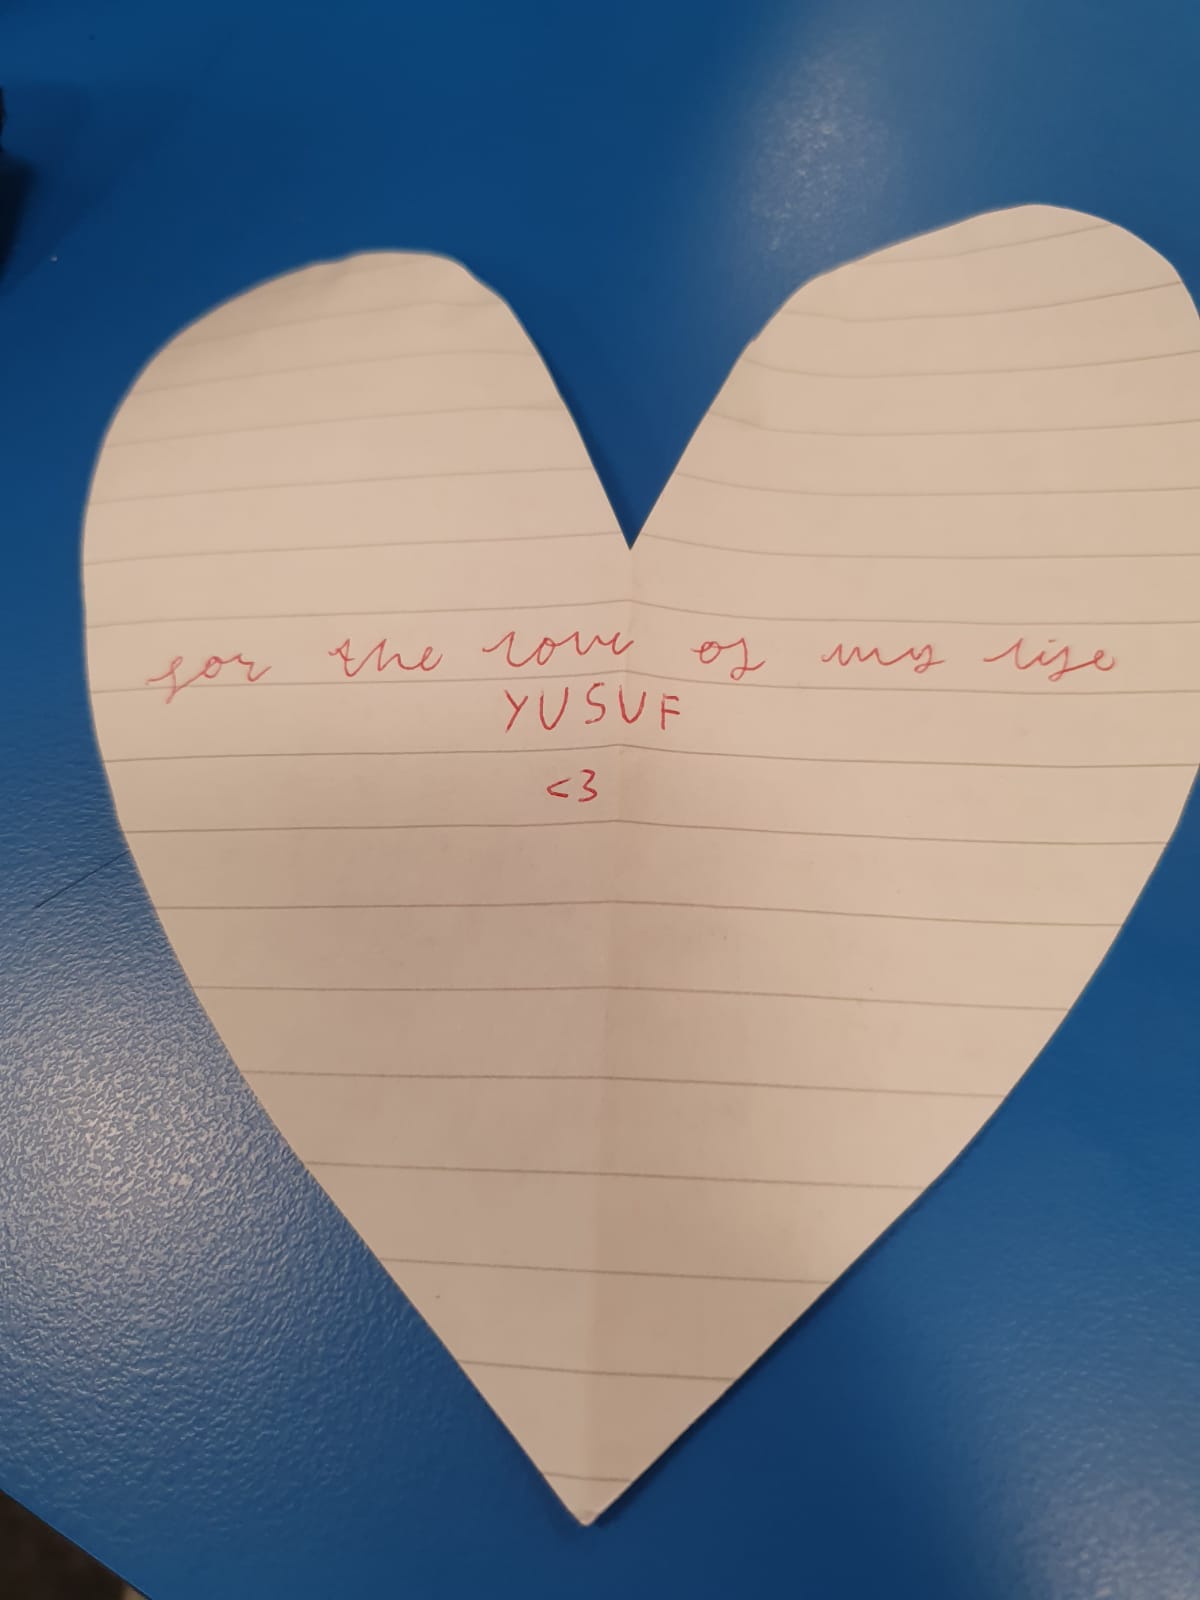 for the love of my life
YUSUF
<3